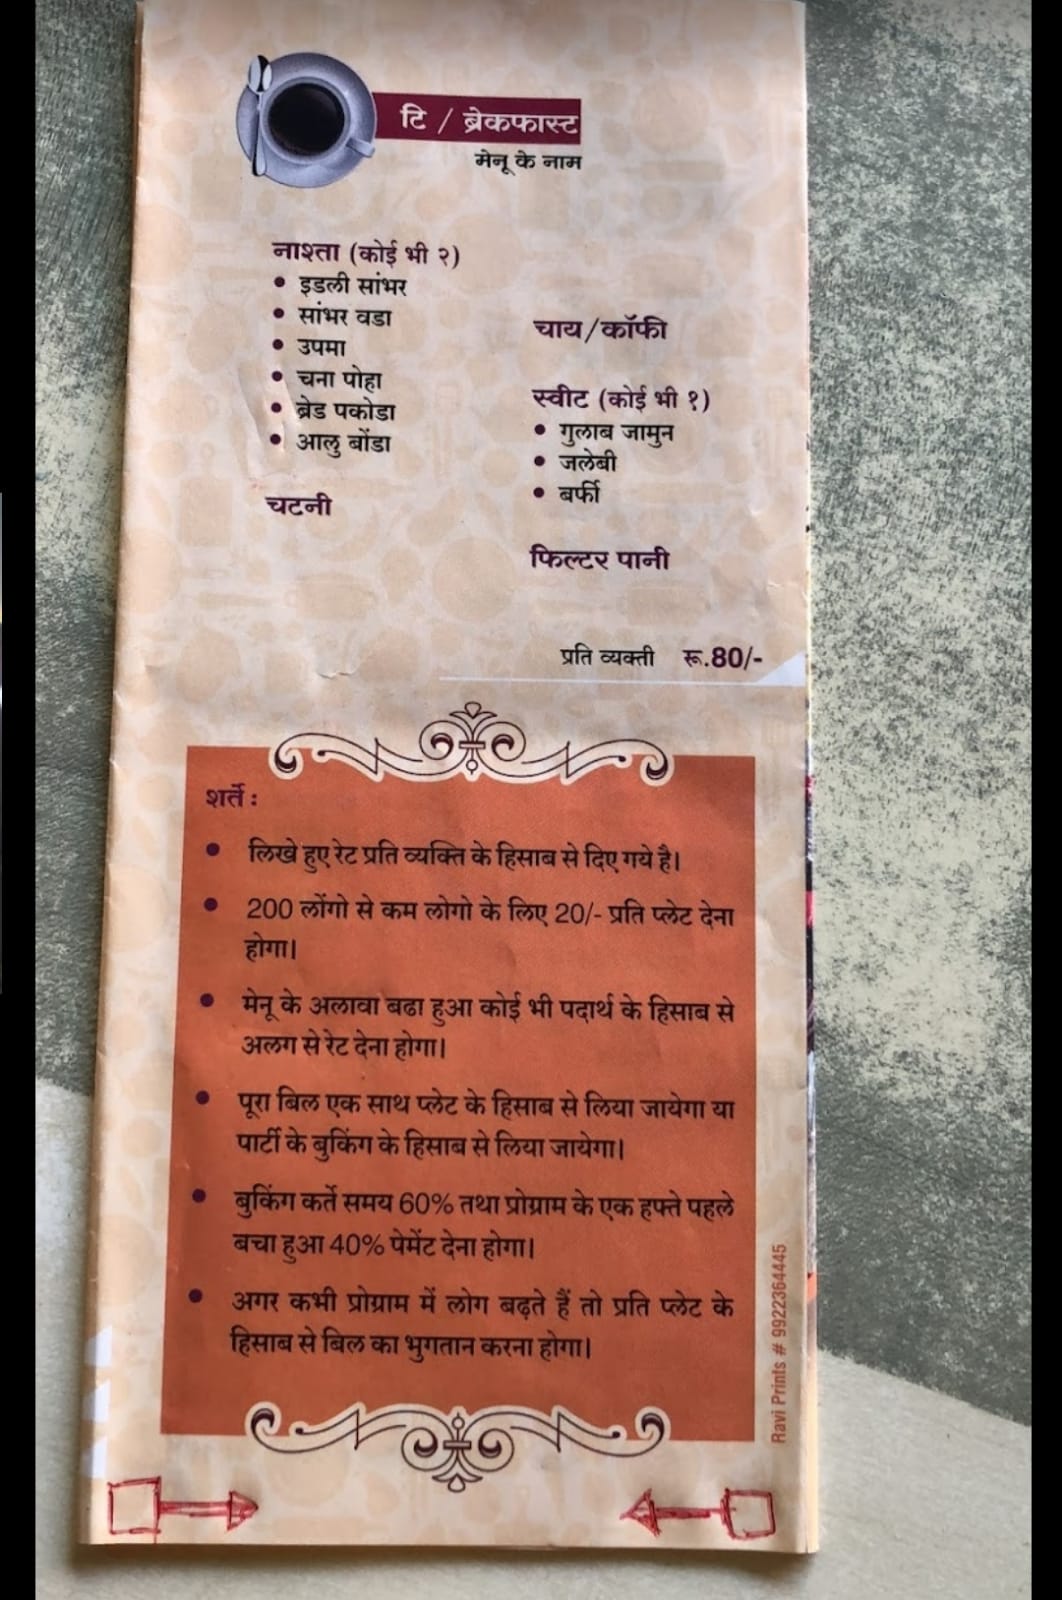 टि / ब्रेकफास्ट
मेनू के नाम
नाश्ता (कोई भी २)
• इडली सांभर
• सांभर वडा
• उपमा
• चना पोहा
• ब्रेड पकोडा
• आलु बोंडा
चटनी
चाय/कॉफी
स्वीट (कोई भी १)
• गुलाब जामुन
• जलेबी
• बर्फी
फिल्टर पानी
प्रति व्यक्ती रू.80/-
शर्ते :
• लिखे हुए रेट प्रति व्यक्ति के हिसाब से दिए गये है।
• 200 लोंगो से कम लोगो के लिए 20/- प्रति प्लेट देना
होगा।
• मेनू के अलावा बढा हुआ कोई भी पदार्थ के हिसाब से
अलग से रेट देना होगा।
• पूरा बिल एक साथ प्लेट के हिसाब से लिया जायेगा या
पार्टी के बुकिंग के हिसाब से लिया जायेगा।
• बुकिंग कर्ते समय 60% तथा प्रोग्राम के एक हफ्ते पहले
बचा हुआ 40% पेमेंट देना होगा।
• अगर कभी प्रोग्राम में लोग बढ़ते हैं तो प्रति प्लेट के
हिसाब से बिल का भुगतान करना होगा।
Ravi Prints # 9922364445